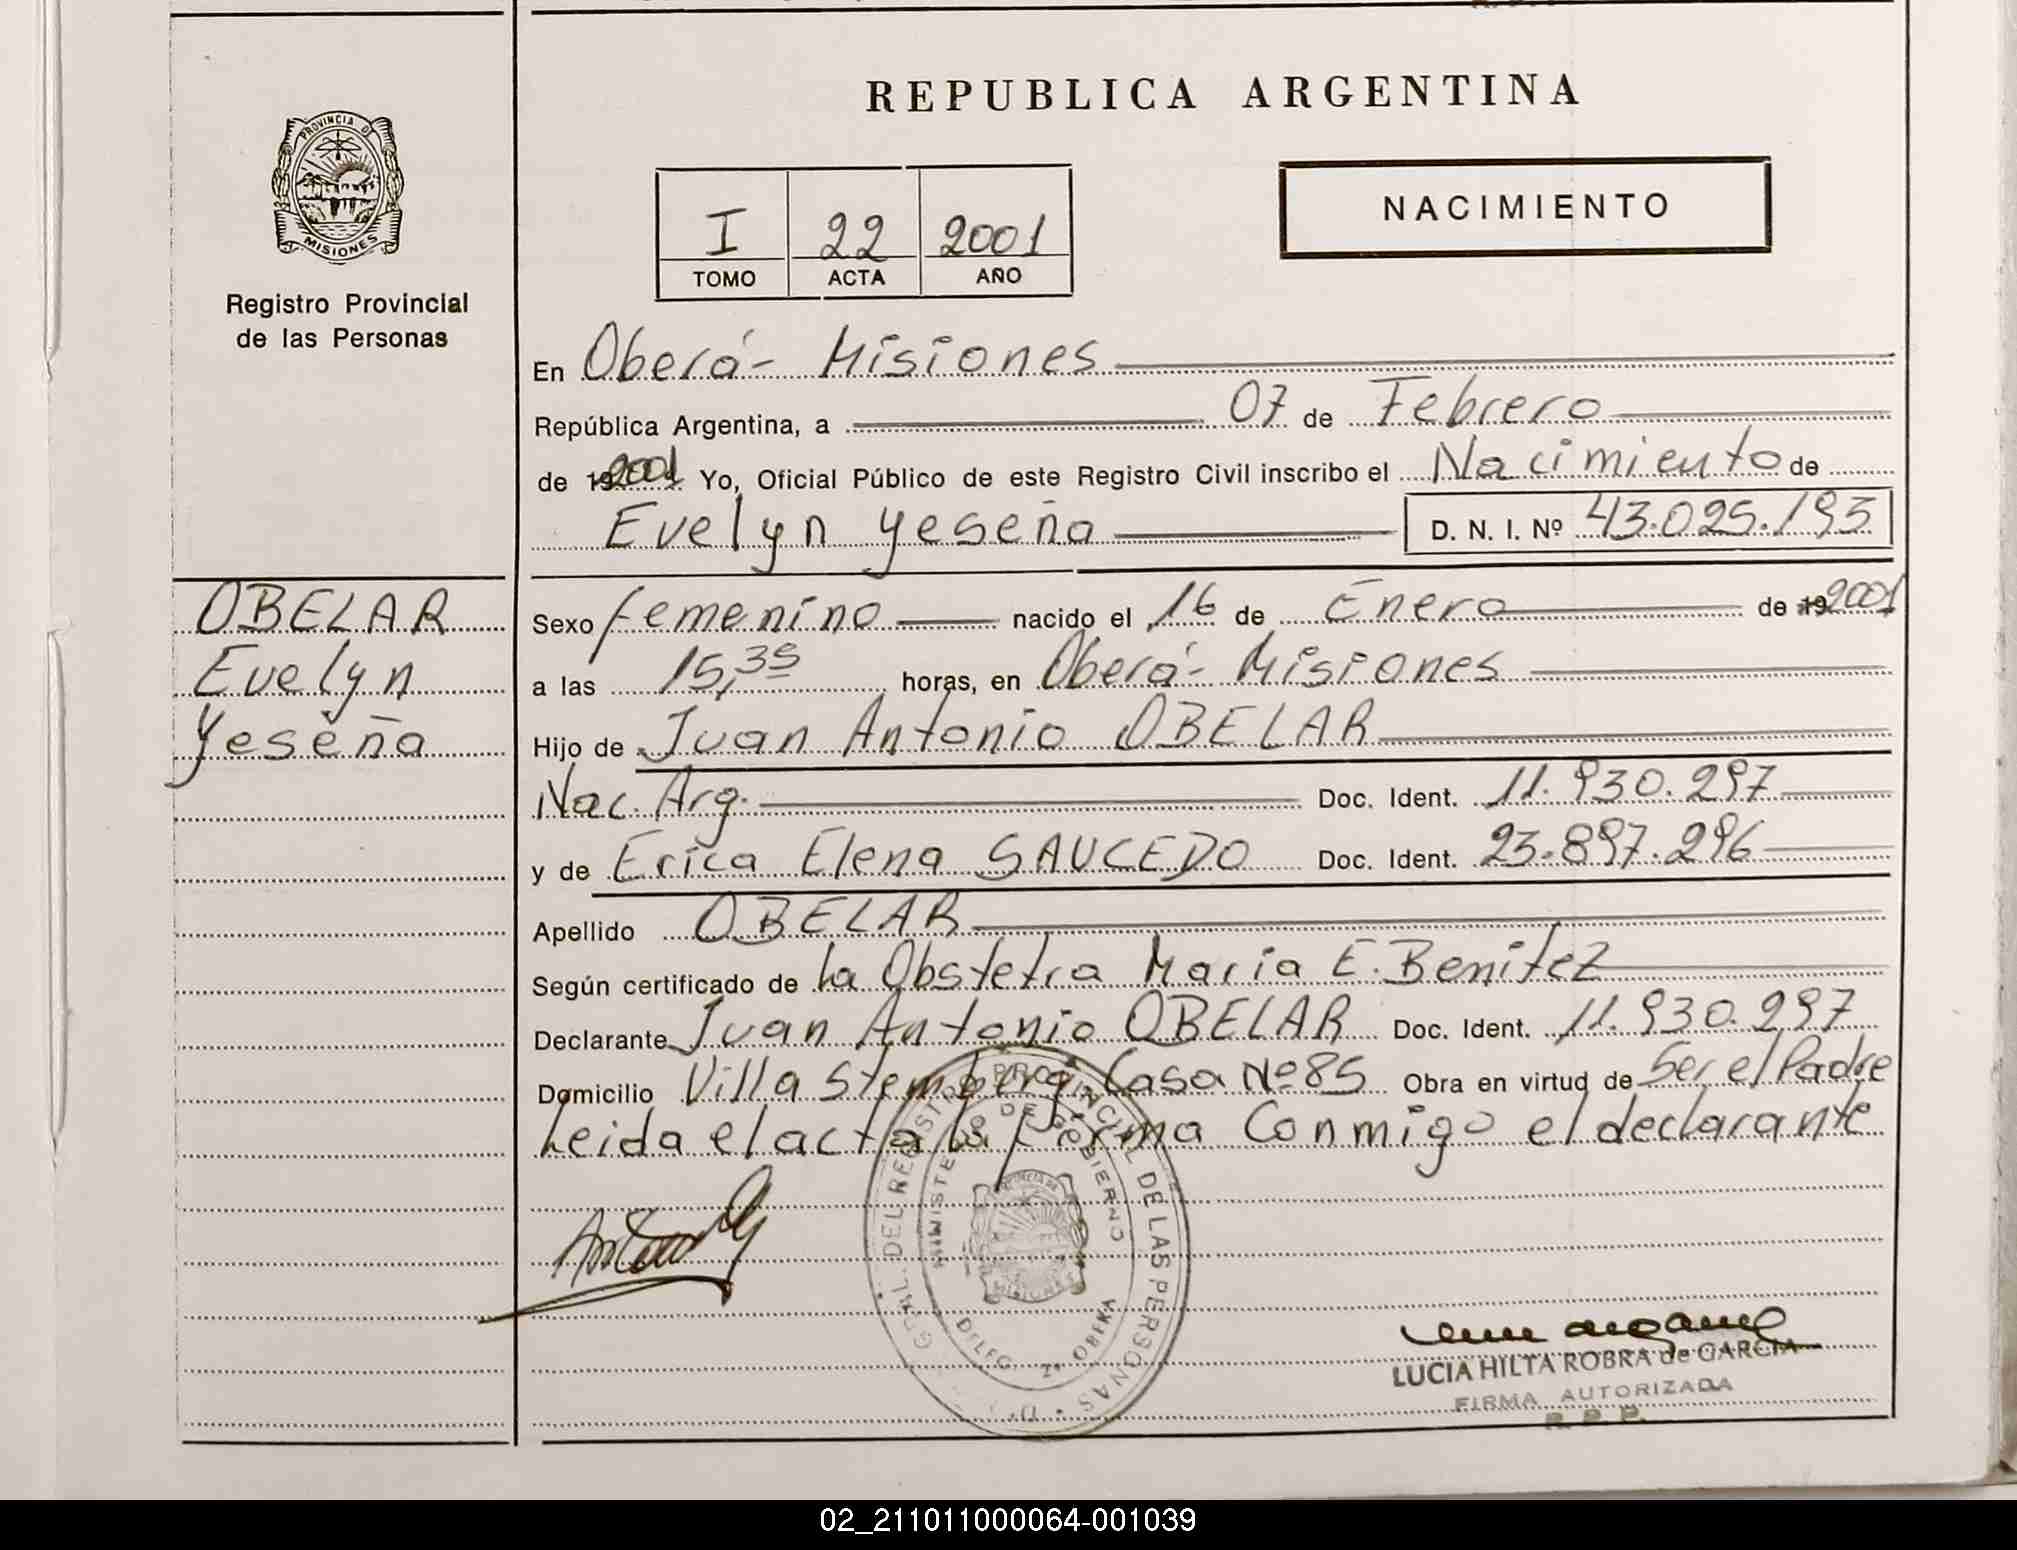 REPUBLICA ARGENTINA
PROVINCIA DE
MISIONES
Registro Provincial
de las Personas
I 22 2001
TOMO ACTA AÑO
NACIMIENTO
En Oberá - Misiones
República Argentina, a 07 de Febrero
de 19 2001 Yo, Oficial Público de este Registro Civil inscribo el Nacimiento de
Evelyn Yeseña D. N. I. Nº 43.025.193
OBELAR
Evelyn
Yeseña
Sexo femenino nacido el 16 de Enero de 19 2001
a las 15,35 horas, en Oberá - Misiones
Hijo de Juan Antonio OBELAR
Nac. Arg. Doc. Ident. 11.930.297
y de Erica Elena SAUCEDO Doc. Ident. 23.897.296
Apellido OBELAR
Según certificado de la Obstetra Maria E. Benitez
Declarante Juan Antonio OBELAR Doc. Ident. 11.930.297
Domicilio Villa Stemberg Casa Nº 85 Obra en virtud de Ser el Padre
Leida el acta la firma Conmigo el declarante
GRAL. DEL REGISTRO PROVINCIAL DE LAS PERSONAS
MINISTERIO DE GOBIERNO
DELEG. 2ª OBERA
MISIONES
LUCIA HILTA ROBRA de GARCIA
FIRMA AUTORIZADA
R. P. P.
02_211011000064-001039